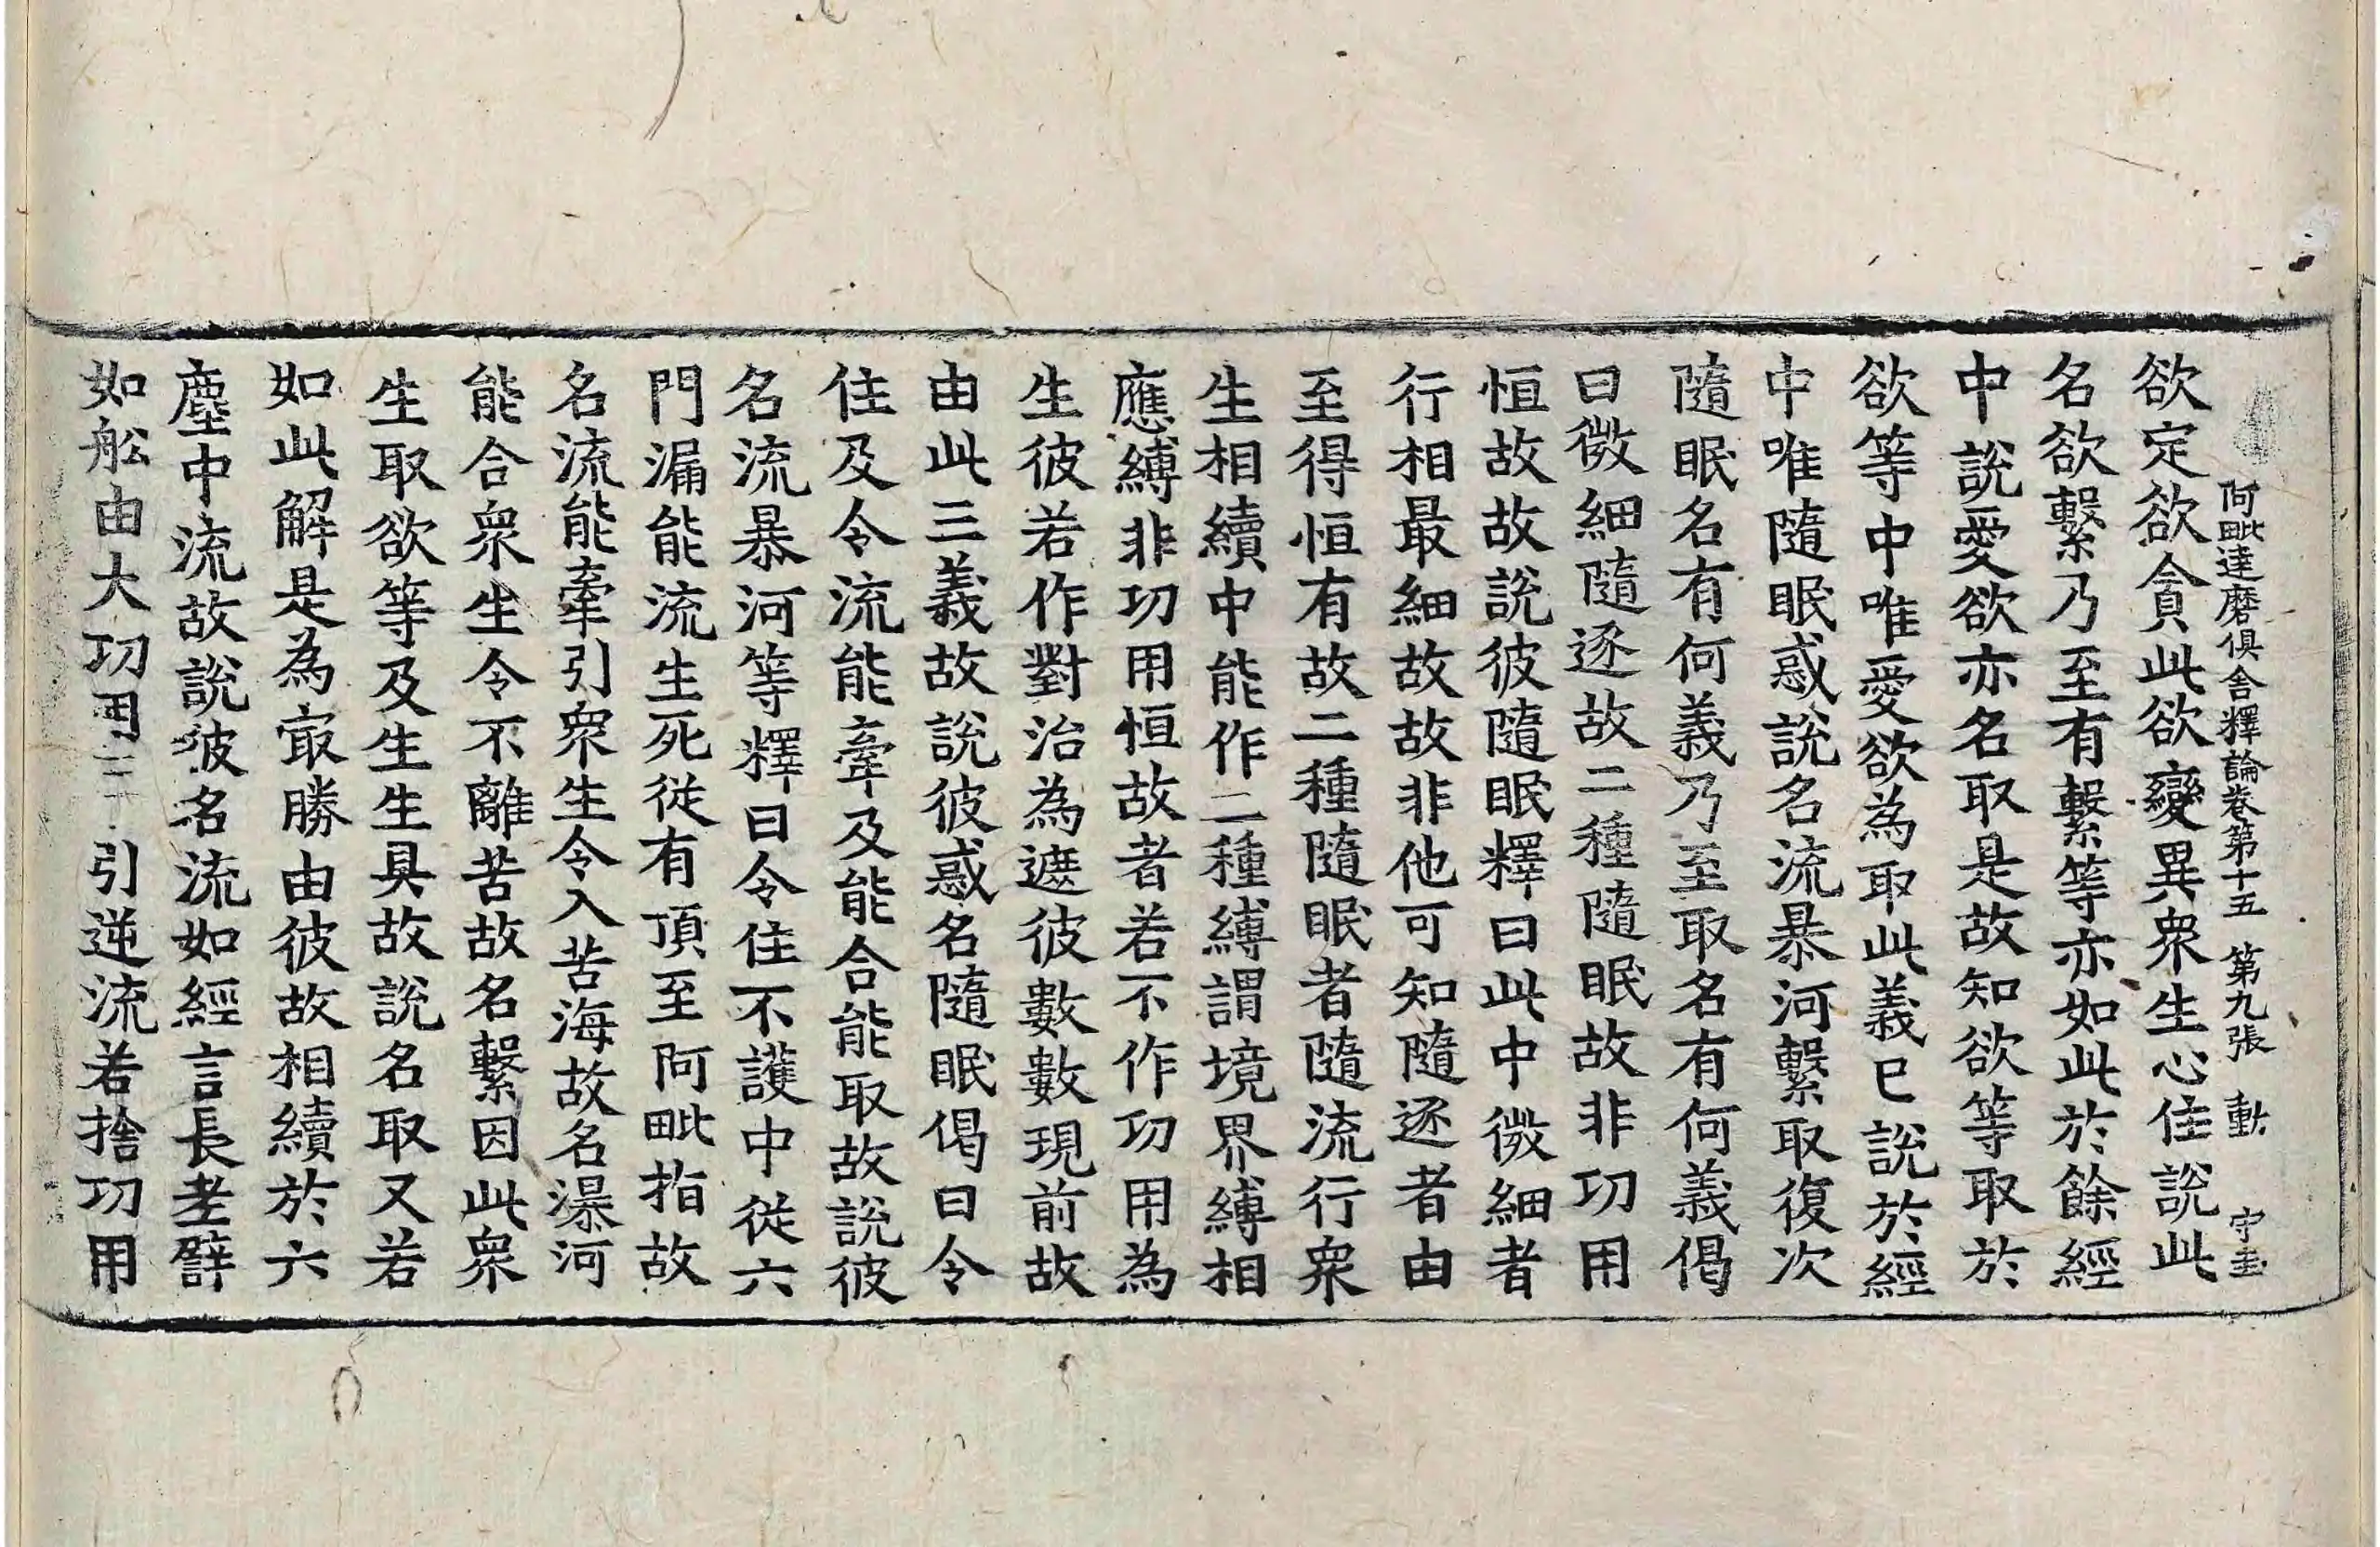 阿毗達磨俱舍釋論卷第十五　第九張　動
欲定欲欲貪此欲變異衆生心住說此
名欲繫乃至有繫等亦如此於餘經
中說愛欲亦名取是故知欲等取於
欲等中唯愛欲為取此義已說於經
中唯隨眠惑說名流暴河繫取復次
隨眠名有何義乃至取名有何義偈
曰微細隨逐故二種隨眠故非功用
恒故故說彼隨眠釋曰此中微細者
行相最細故故非他可知隨逐者由
至得恒有故二種隨眠者隨流行衆
生相續中能作二種縛謂境界縛相
應縛非功用恒故者若不作功用為
生彼若作對治為遮彼數數現前故
由此三義故說彼惑名隨眠偈曰令
住及令流能牽及能合能取故說彼
名流暴河等釋曰令住不護中從六
門漏能流生死從有頂至阿毗指故
名流能牽引衆生令入苦海故名瀑河
能合衆生令不離苦故名繫因此衆
生取欲等及生生具故說名取又若
如此解是為㝡勝由彼故相續於六
塵中流故說彼名流如經言長老譬
如舩由大功用引逆流若捨功用